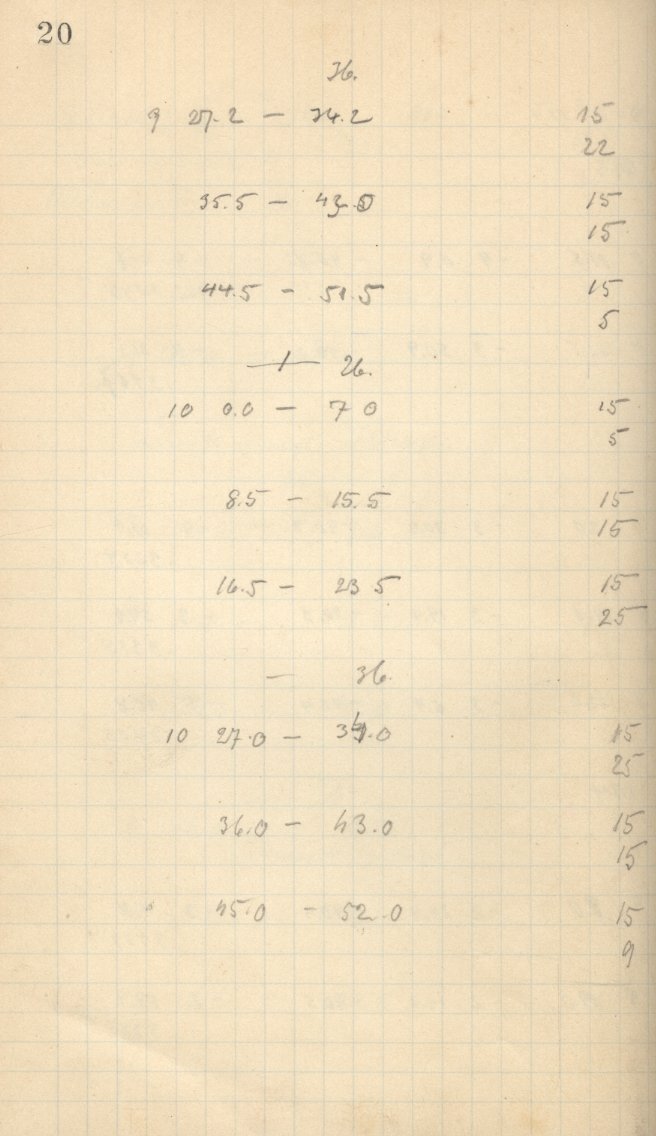 20
36.
9 27.2 — 34.2 15
22
35.5 — 43.0 15
15
44.5 — 51.5 15
5
— 26.
10 0.0 — 7 0 15
5
8.5 — 15.5 15
15
16.5 — 23 5 15
25
— 36.
10 27.0 — 34.0 15
25
36.0 — 43.0 15
15
45.0 — 52.0 15
9